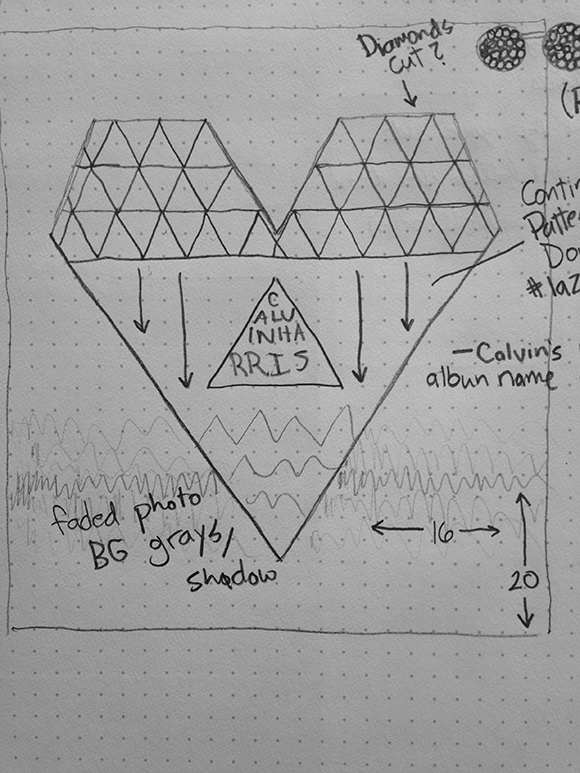 Diamonds
cut ?
Contin
Patte
Do
#laz
C
ALV
INHA
RRIS
—Calvin's
albun name
faded photo
BG grays/
shadow
16
20